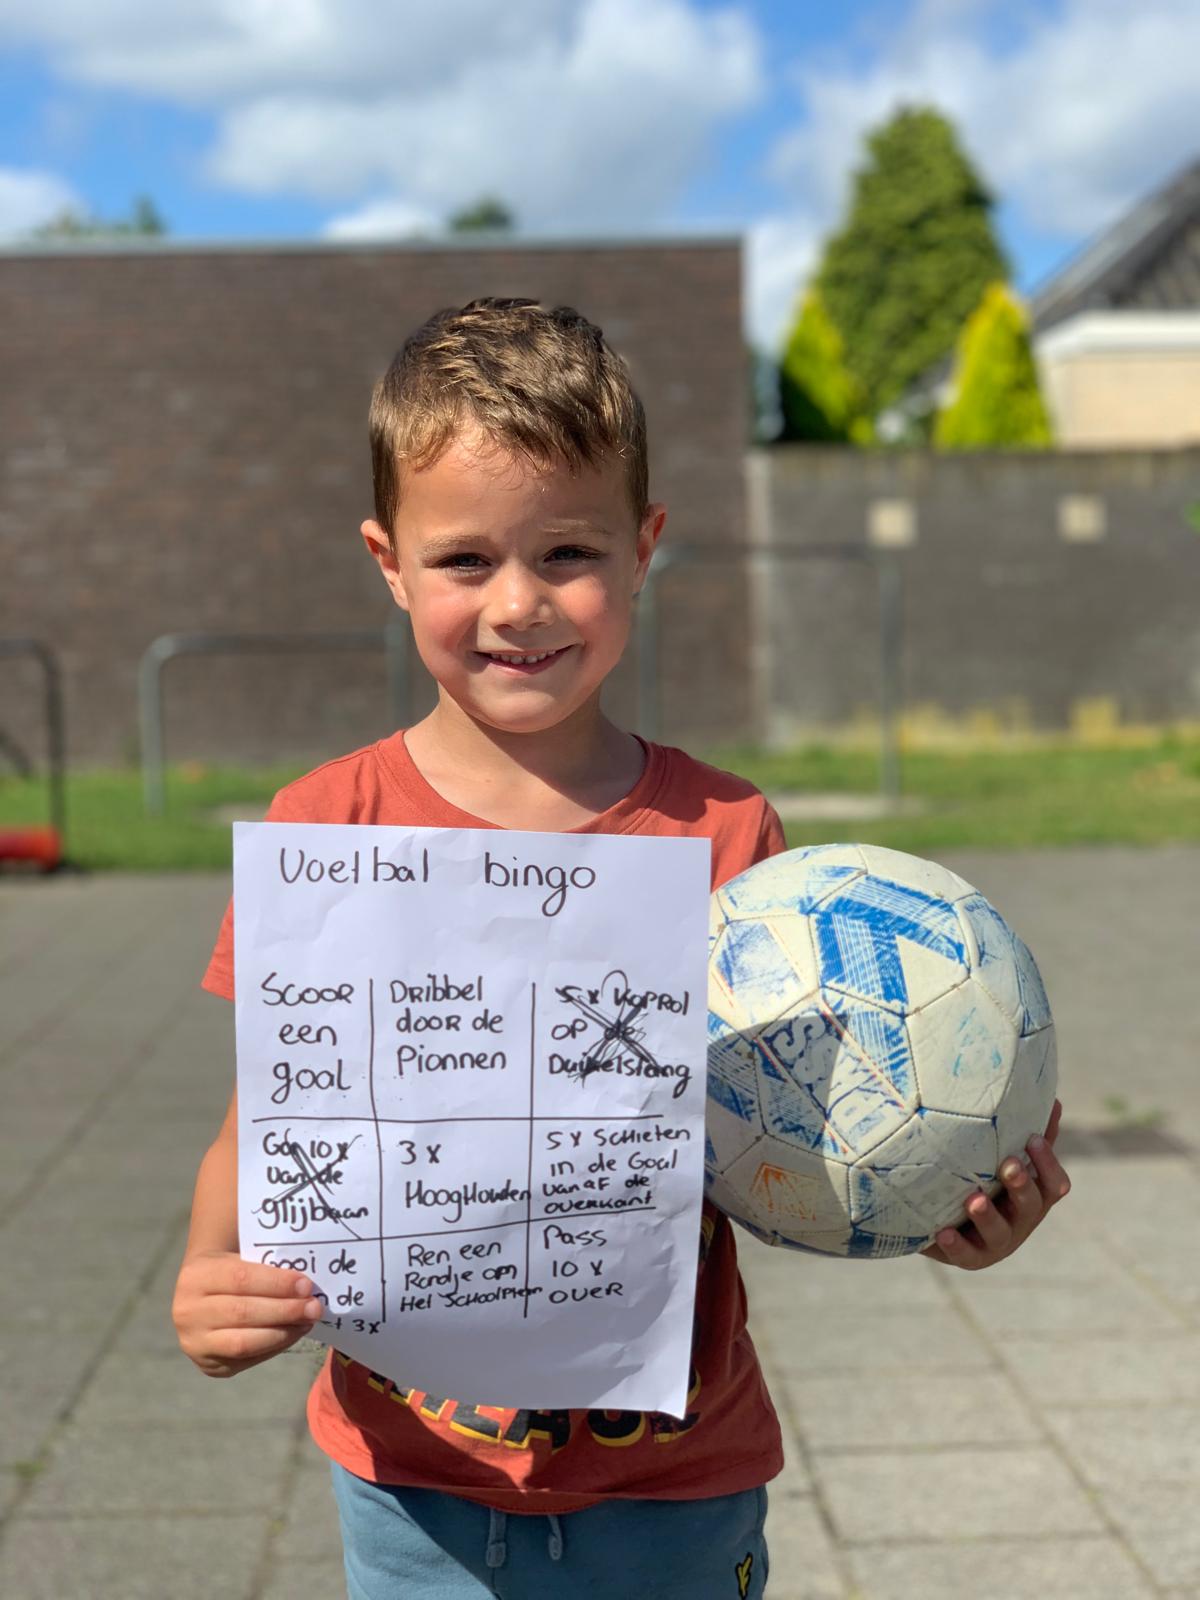 Voetbal bingo
Scoor
een
goal
Dribbel
door de
Pionnen
5x Koprol
op de
Duikelstang
Ga 10x
van de
glijbaan
3x
HoogHouden
5x Schieten
in de Goal
vanaf de
overkant
Gooi de
de
3x
Ren een
Rondje om
Het Schoolplein
Pass
10x
over